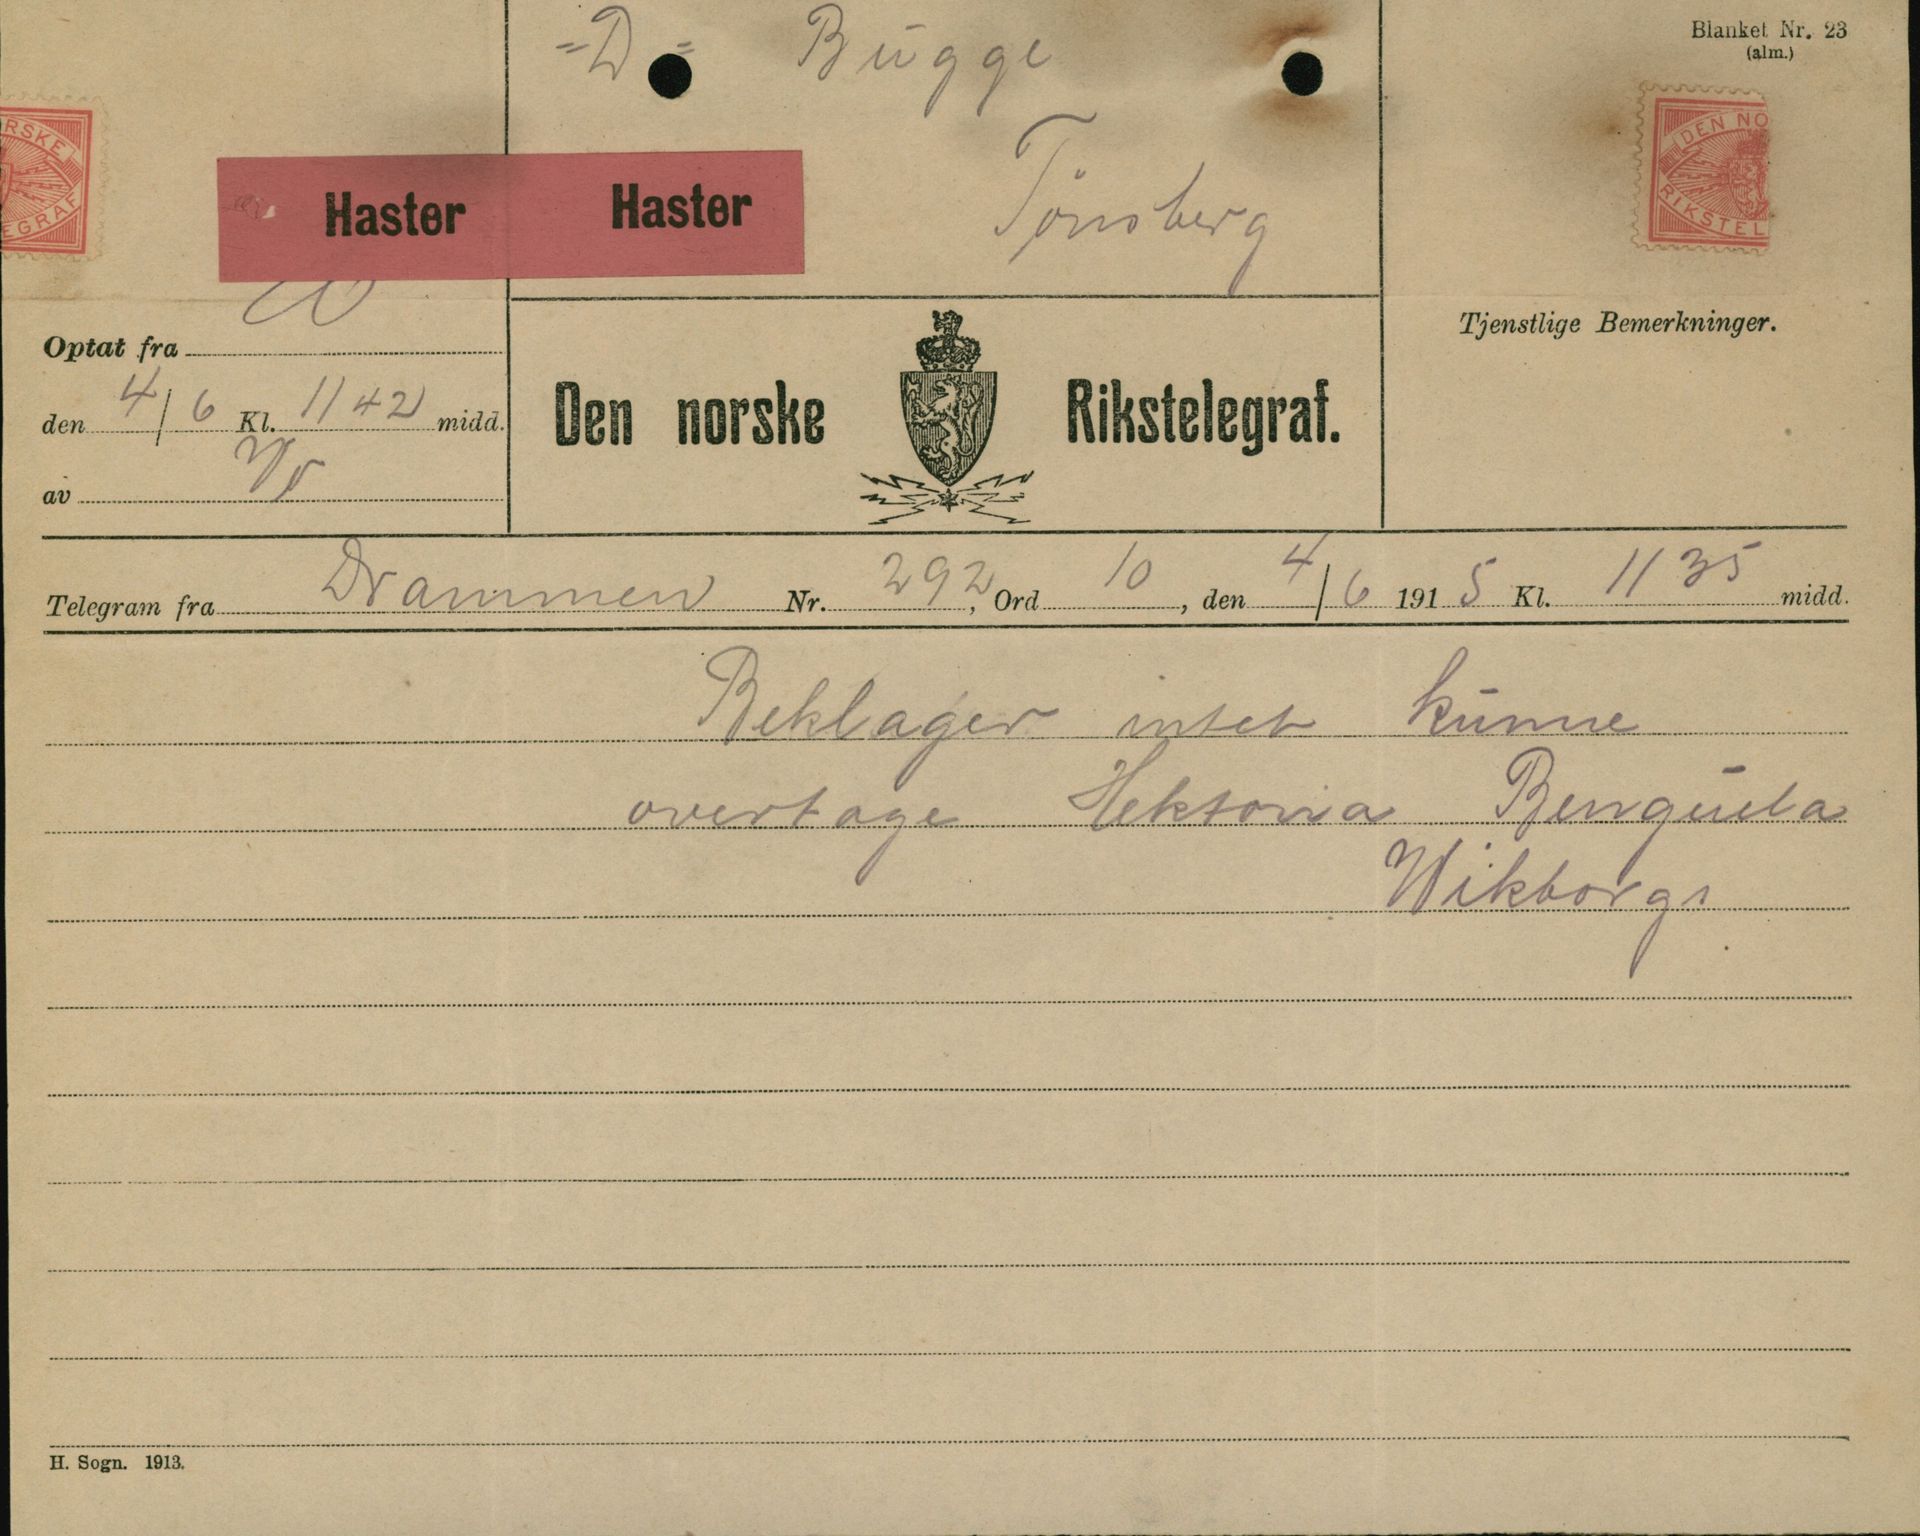 =D= Bugge
Blanket Nr. 23
(alm.)
RSKE
EGRAF
DEN NO
RIKSTEL
Haster Haster
Tönsberg
Optat fra
den 4/6 Kl. 11 42 midd.
av
Den norske Rikstelegraf.
Tjenstlige Bemerkninger.
Telegram fra Drammen Nr. 292, Ord 10, den 4/6 1915 Kl. 11 35 midd.
Beklager intet kunne
overtage Hektoria Benguela
Wikborgs
H. Sogn. 1913.